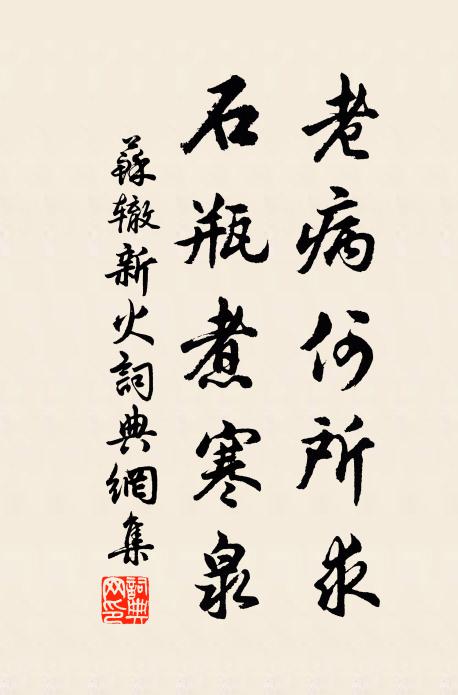 老病何所求
石瓶煮寒泉
蘇辙新火詞典網集
詞典網印